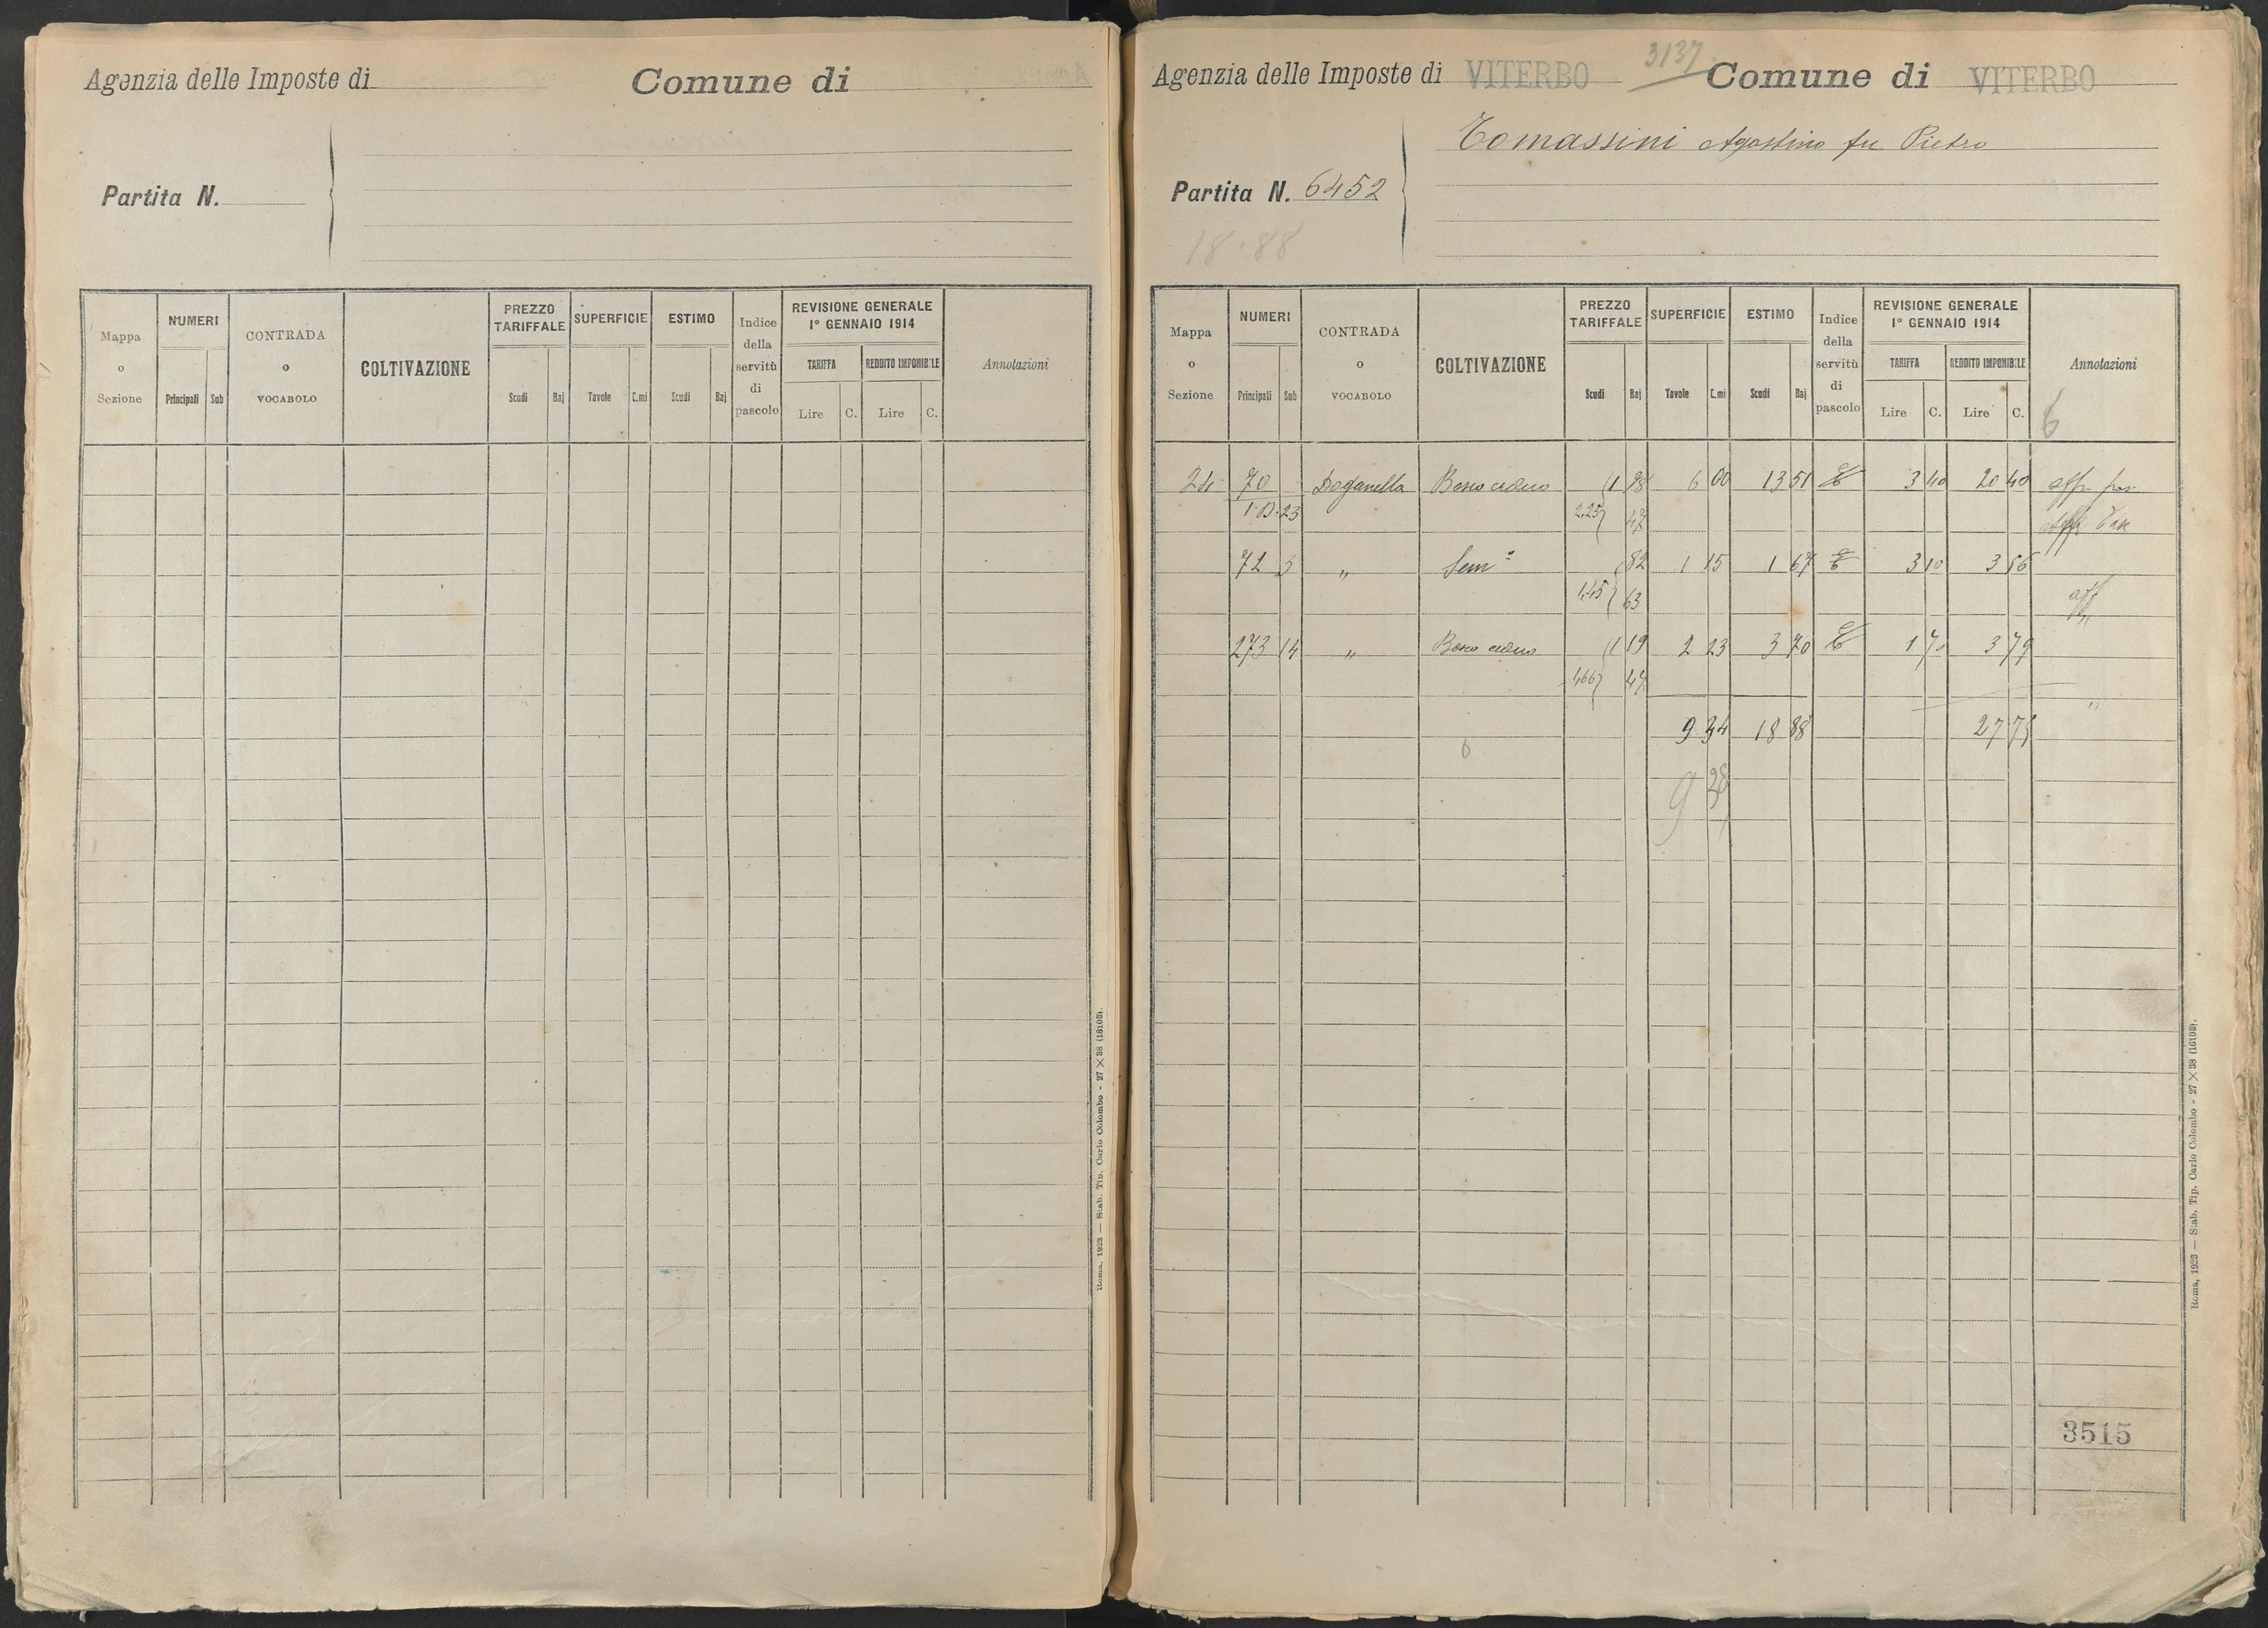 Agenzia delle Imposte di Comune di
Partita N.
Mappa o Sezione NUMERI Principali Sub CONTRADA o VOCABOLO COLTIVAZIONE PREZZO TARIFFALE Scudi Baj SUPERFICIE Tavole C.mi ESTIMO Scudi Baj Indice della servitù di pascolo REVISIONE GENERALE 1° GENNAIO 1914 TARIFFA Lire C. REDDITO IMPONIBILE Lire C. Annotazioni
Roma, 1923 — Stab. Tip. Carlo Colombo - 27 X 38 (16105).
3137
Agenzia delle Imposte di VITERBO Comune di VITERBO
Tomassini Agostino fu Pietro
Partita N. 6452
18.88
Mappa o Sezione NUMERI Principali Sub CONTRADA o VOCABOLO COLTIVAZIONE PREZZO TARIFFALE Scudi Baj SUPERFICIE Tavole C.mi ESTIMO Scudi Baj Indice della servitù di pascolo REVISIONE GENERALE 1° GENNAIO 1914 TARIFFA Lire C. REDDITO IMPONIBILE Lire C. Annotazioni
6
24 70 Doganella Bosco ceduo 1 98 6 00 13 51 3 40 20 40
23 2,25 47
72 3 " Sem° 82 1 15 1 67 3 10 3 56
1,45 63 aff
"
273 14 " Bosco ceduo 1 19 2 23 3 70 1 70 3 79
1,66 47
"
9 34 18 88 27 75
9 38
3515
Roma, 1923 — Stab. Tip. Carlo Colombo - 27 X 38 (16105).